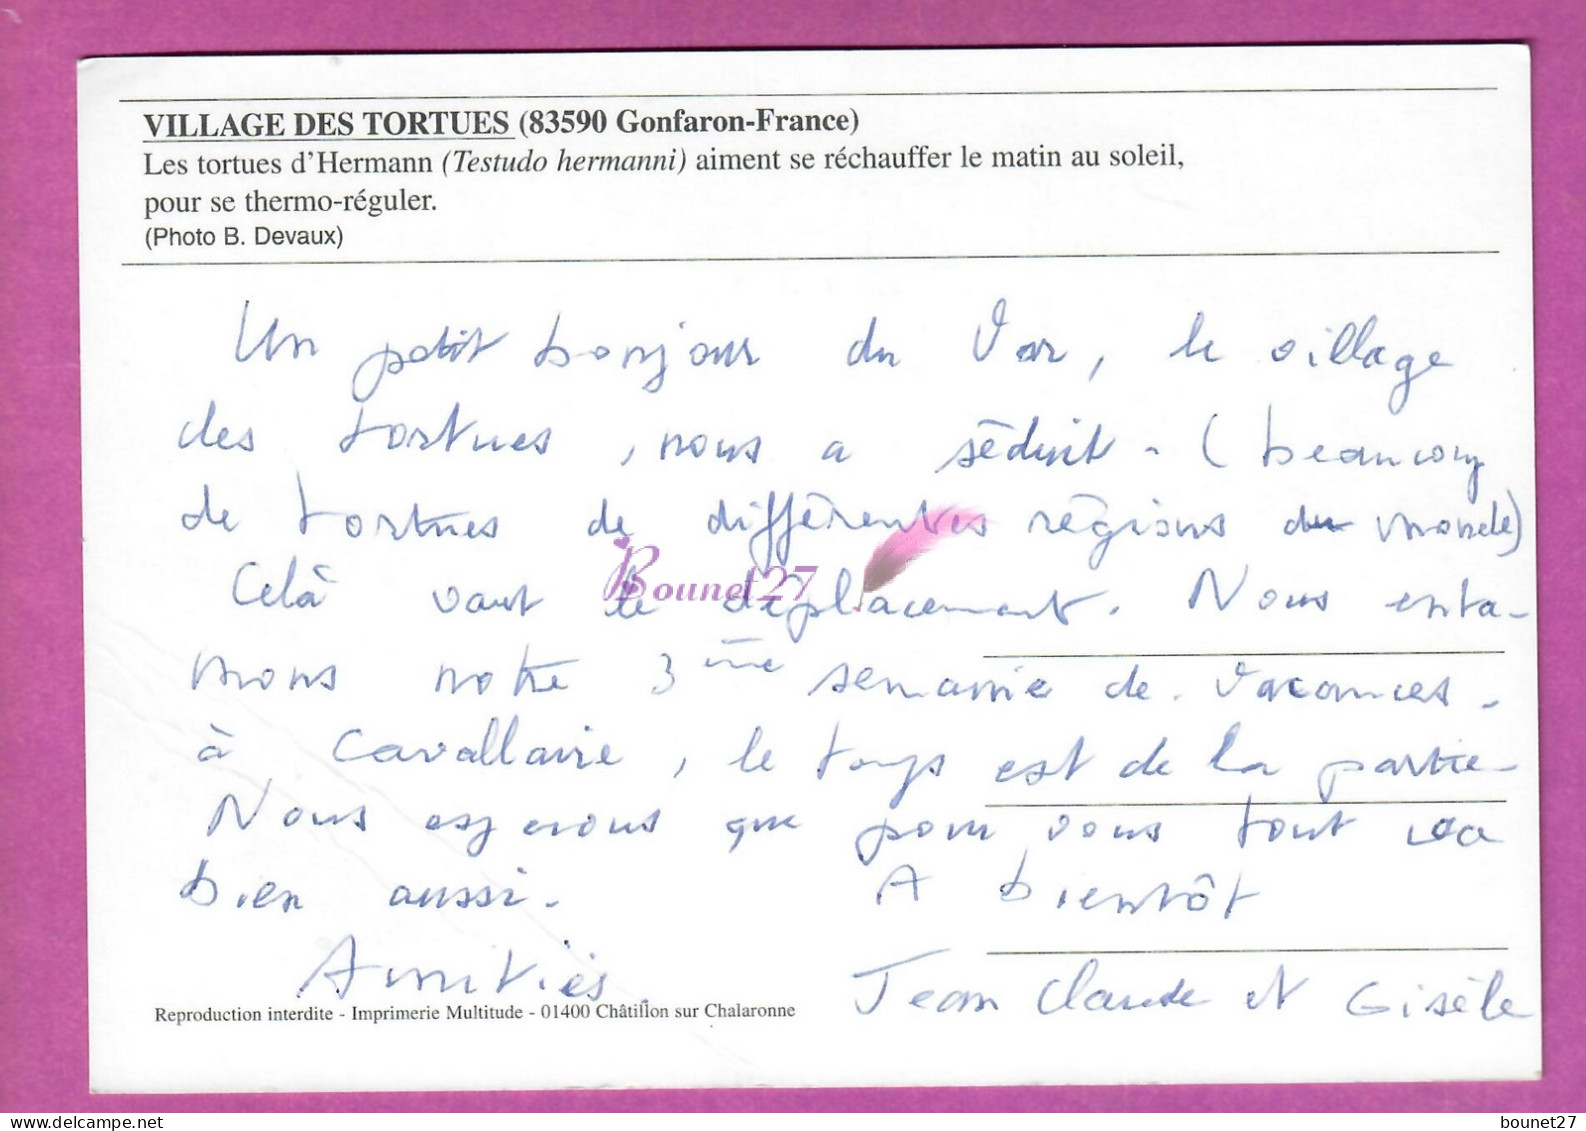 VILLAGE DES TORTUES (83590 Gonfaron-France)
Les tortues d'Hermann (Testudo hermanni) aiment se réchauffer le matin au soleil,
pour se thermo-réguler.
(Photo B. Devaux)
Un petit bonjour du Var, le village
des tortues, nous a séduit - (beaucoup
de tortues de différentes régions du monde)
Celà vaut le déplacement. Nous enta-
mons notre 3ème semaine de vacances -
à Cavallaire, le temps est de la partie -
Nous espérons que pour vous tout va
bien aussi. A bientôt
Amitiés Jean Claude et Gisèle
Reproduction interdite - Imprimerie Multitude - 01400 Châtillon sur Chalaronne
Bounet27
www.delcampe.net
bounet27